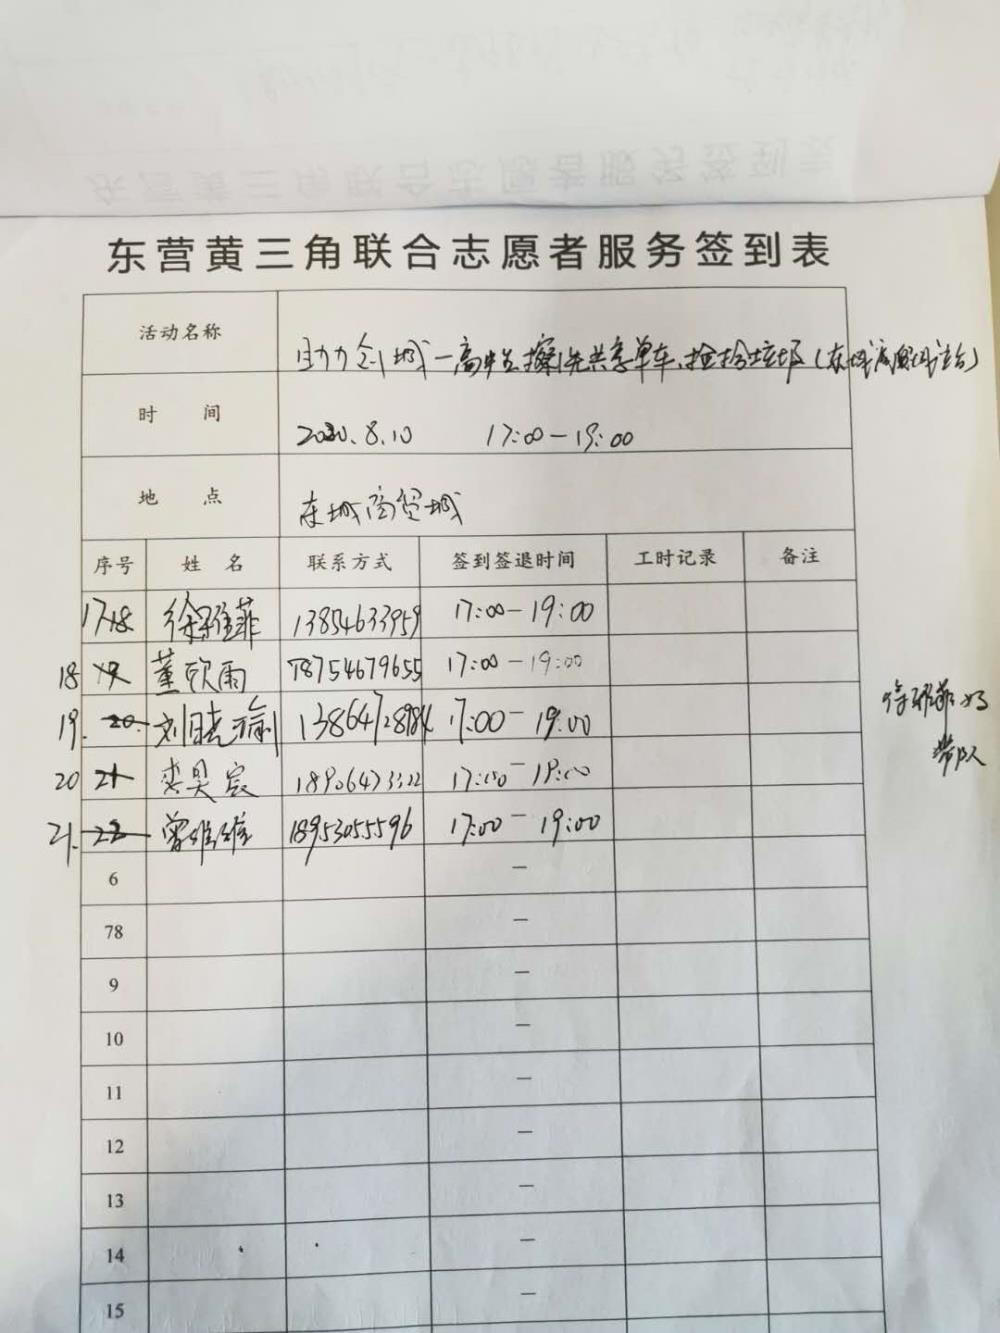 东营黄三角联合志愿者服务签到表
活动名称 助力创城一高中生擦洗共享单车、捡拾垃圾(东城
时 间 2020.8.10 17:00-19:00
地 点 东城商贸城
序号 姓 名 联系方式 签到签退时间 工时记录 备注
17 18 徐雅菲 13854633959 17:00-19:00
18 19 董欣雨 18754679655 17:00-19:00
19. 20 刘晓瑜 13864728984 17:00-19:00
徐雅菲妈
带队
20 21 栾昊宸 18906473322 17:00-19:00
21. 22 曾维维 18953055596 17:00-19:00
6 —
78 —
9 —
10 —
11 —
12 —
13 —
14 —
15 —